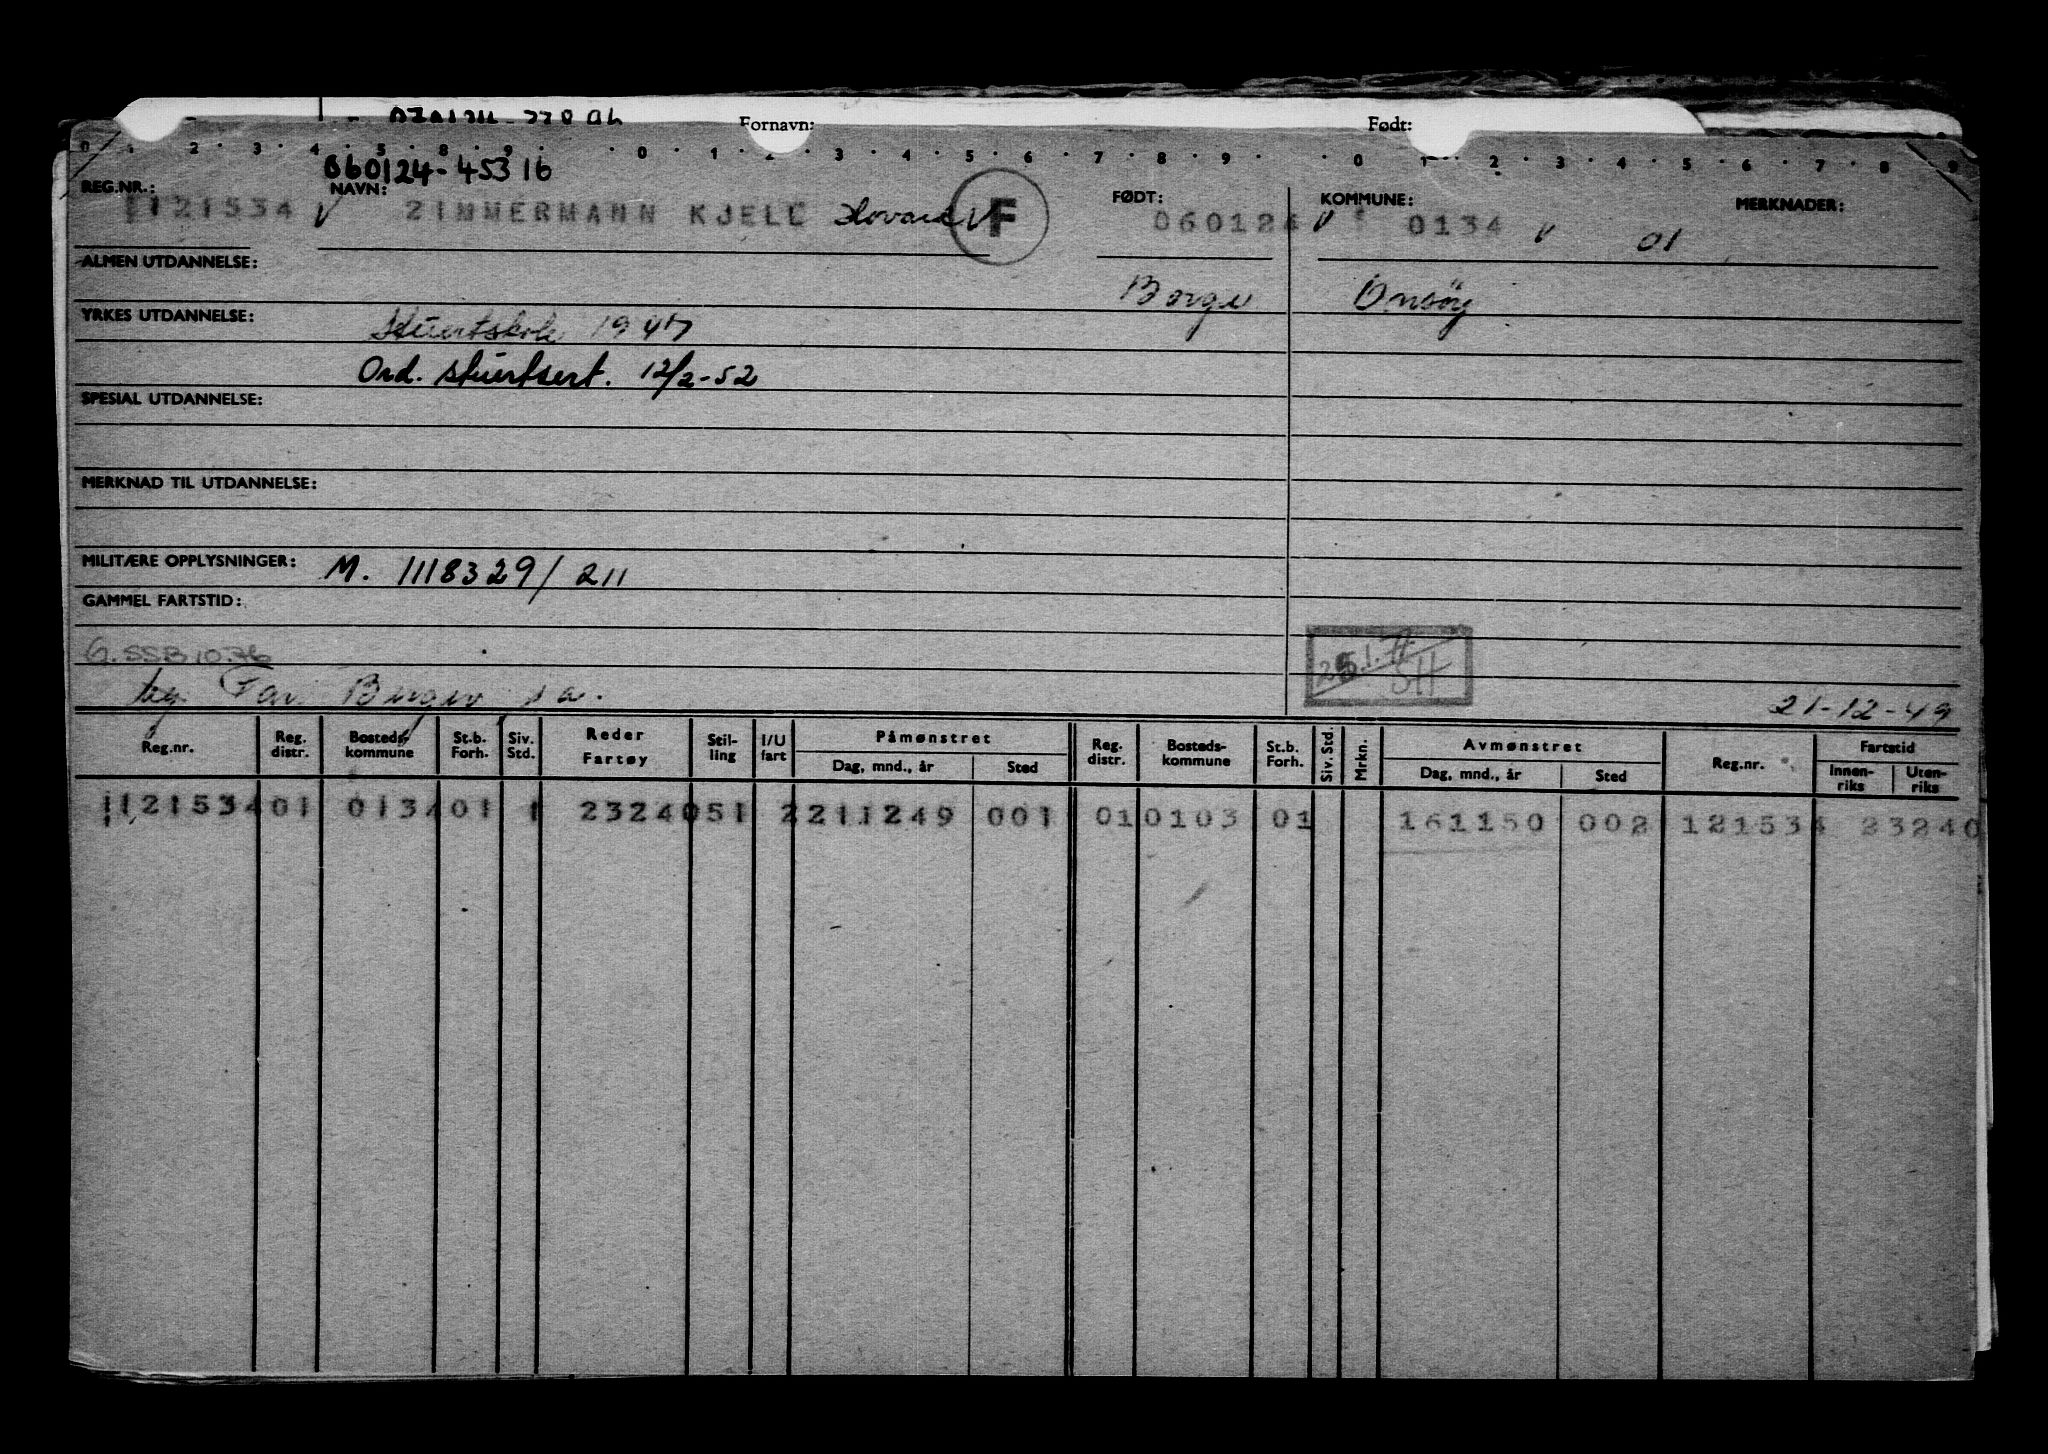 Fornavn: Født:
0 1 2 3 4 5 8 9 0 1 2 3 4 5 6 7 8 9 0 1 2 3 4 5 6 7 8 9
060124-45316
REG.NR.: NAVN: FØDT: KOMMUNE: MERKNADER:
121534 V ZIMMERMANN KJELL Hovard V F 060124 V 0134 V 01
ALMEN UTDANNELSE:
Borge Onsøy
YRKES UTDANNELSE: Stuertskole 1947
Ord. stuertsert. 12/2-52
SPESIAL UTDANNELSE:
MERKNAD TIL UTDANNELSE:
MILITÆRE OPPLYSNINGER: M. 1118329/211
GAMMEL FARTSTID:
G. SSB 10.76
Far Birger s.a.
SH
21-12-49
Reg.nr. Reg. distr. Bosteds- kommune St.b. Forh. Siv. Std. Reder Fartøy Stil- ling I/U fart Påmønstret Dag, mnd., år Sted Reg. distr. Bosteds- kommune St.b. Forh. Siv. Std. Mrkn. Avmønstret Dag, mnd., år Sted Reg.nr. Fartstid Innen- riks Uten- riks
121534 01 0134 01 1 23240 51 2 211249 001 01 0103 01 161150 002 121534 23240